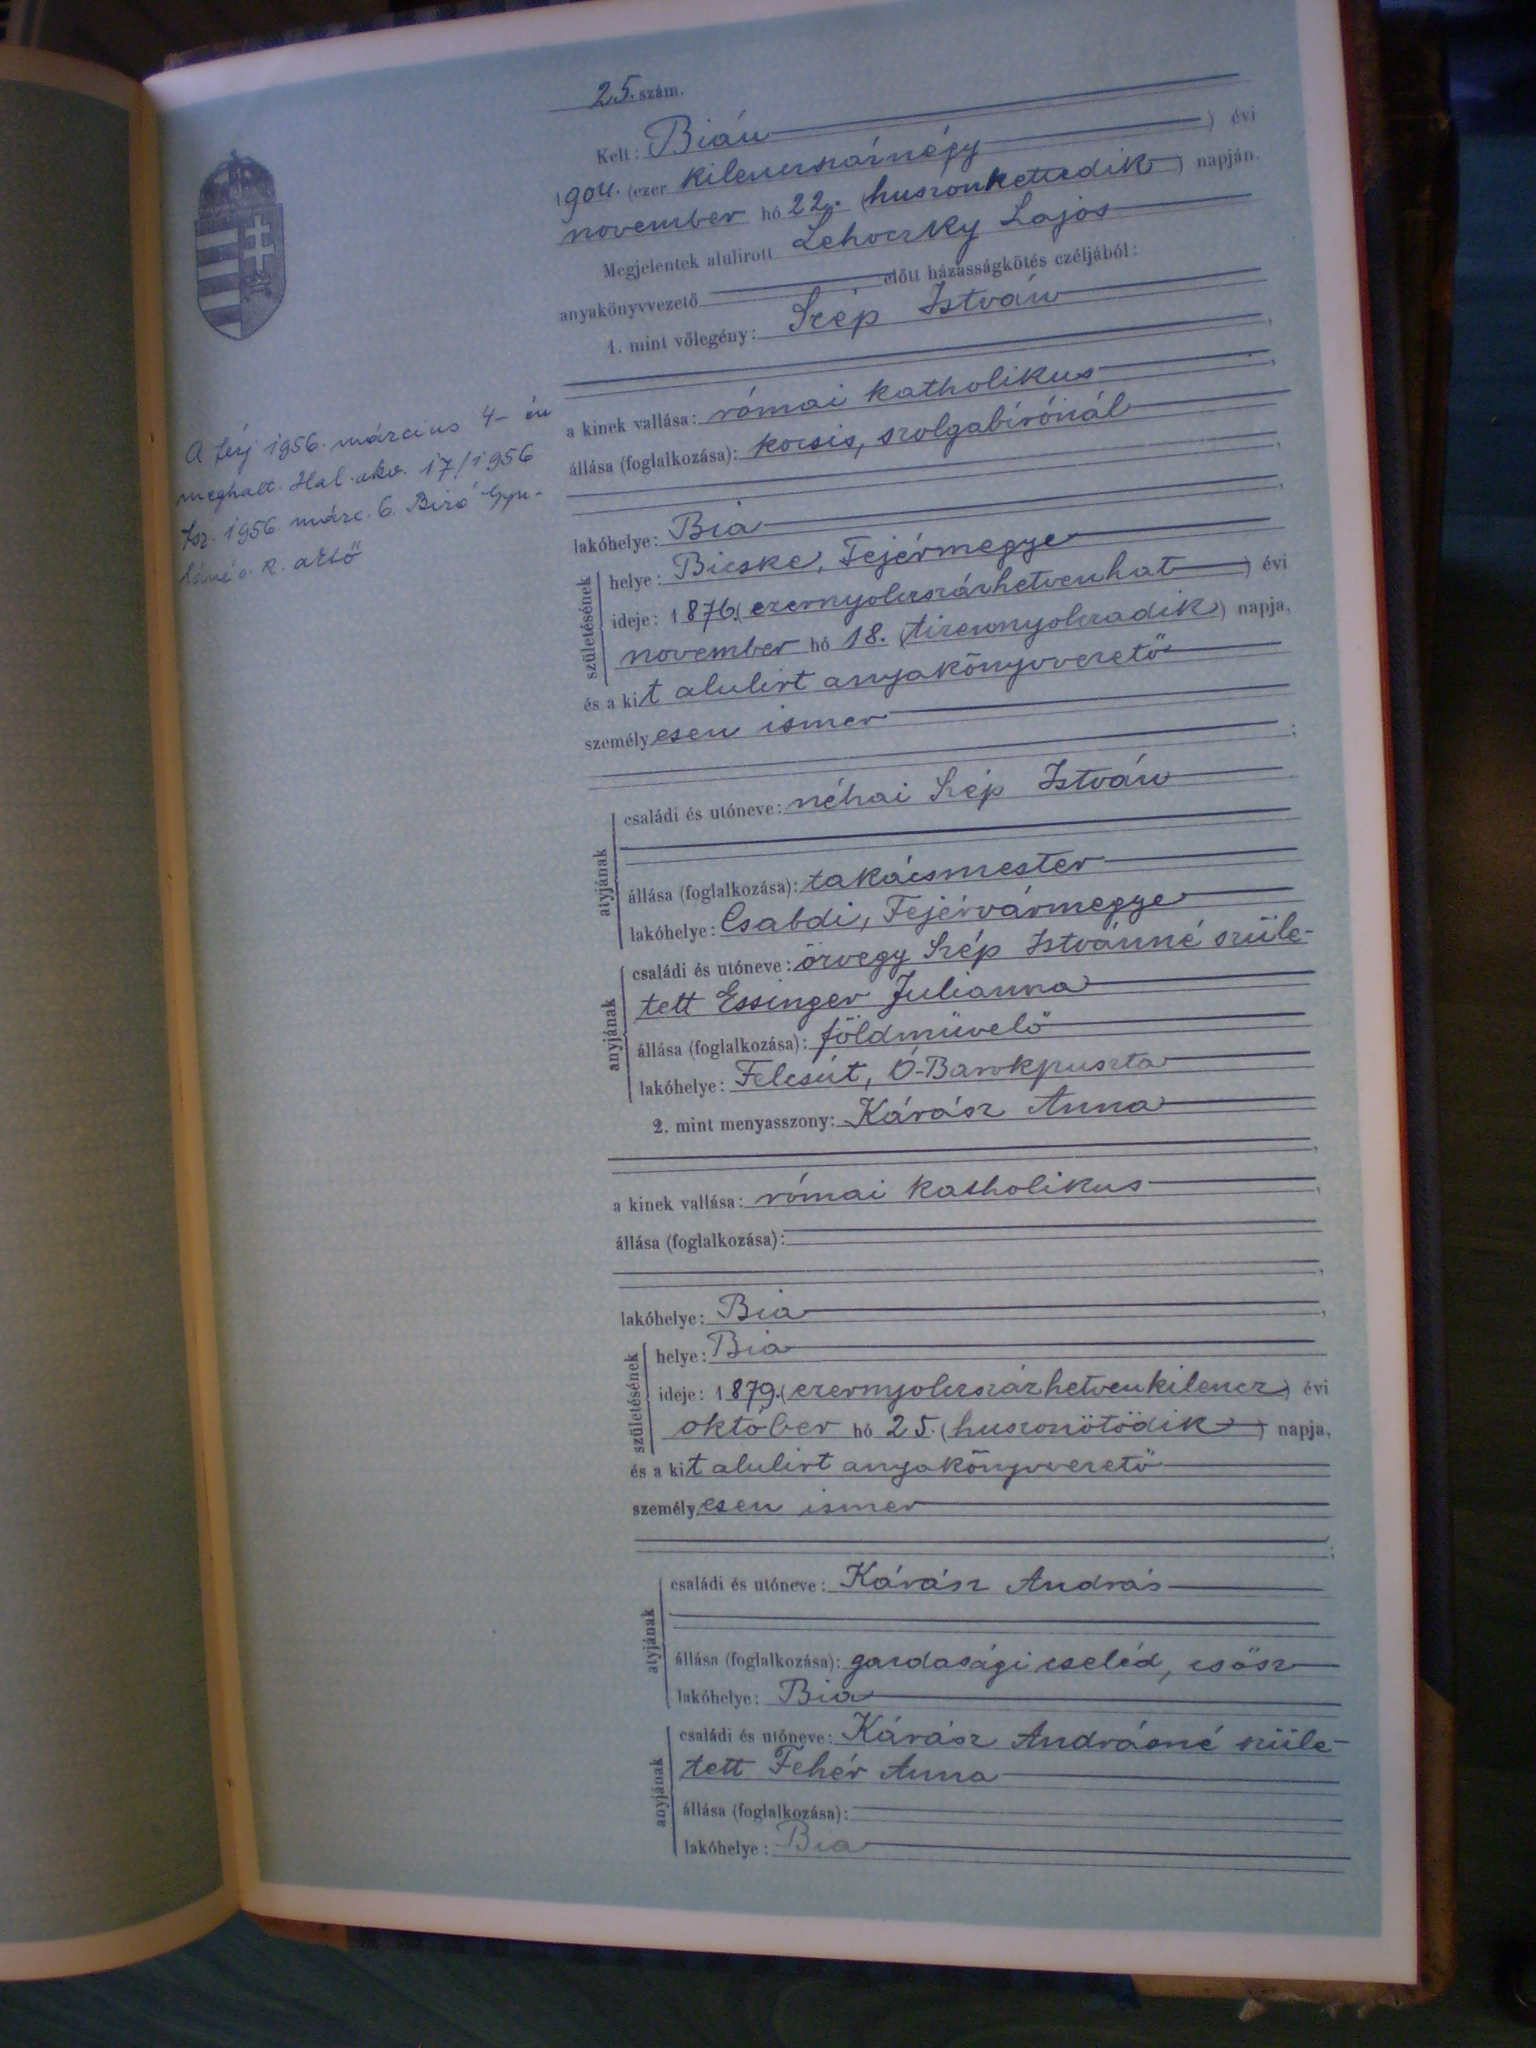 25. szám.
Kelt: Bián
1904. (ezer kilencszáznégy) évi
november hó 22. (huszonkettedik) napján.
Megjelentek alulirott Lehoczky Lajos
anyakönyvvezető előtt házasságkötés czéljából:
1. mint vőlegény: Szép István
a kinek vallása: római katholikus
állása (foglalkozása): kocsis, szolgabírónál
lakóhelye: Bia
születésének
helye: Bicske, Fejérmegye
ideje: 1876. (ezernyolcszázhetvenhat) évi
november hó 18. (tizennyolczadik) napja,
és a kit alulírt anyakönyvvezető
személyesen ismer
atyjának
családi és utóneve: néhai Szép István
állása (foglalkozása): takácsmester
lakóhelye: Csabdi, Fejérvármegye
anyjának
családi és utóneve: özvegy Szép Istvánné szüle-
tett Essinger Julianna
állása (foglalkozása): földmüvelő
lakóhelye: Felcsút, Ó-Barokpuszta
2. mint menyasszony: Kárász Anna
a kinek vallása: római katholikus
állása (foglalkozása):
lakóhelye: Bia
születésének
helye: Bia
ideje: 1879. (ezernyolczszázhetvenkilencz) évi
október hó 25. (huszonötödik) napja,
és a kit alulírt anyakönyvvezető
személyesen ismer
atyjának
családi és utóneve: Kárász András
állása (foglalkozása): gazdasági cseléd, csősz
lakóhelye: Bia
anyjának
családi és utóneve: Kárász Andrásné szüle-
tett Fehér Anna
állása (foglalkozása):
lakóhelye: Bia
A férj 1956. március 4-én
meghalt. Hal. akv. 17/1956
fsz. 1956. márc. 6. Biró Gyu-
láné s. k. akvő